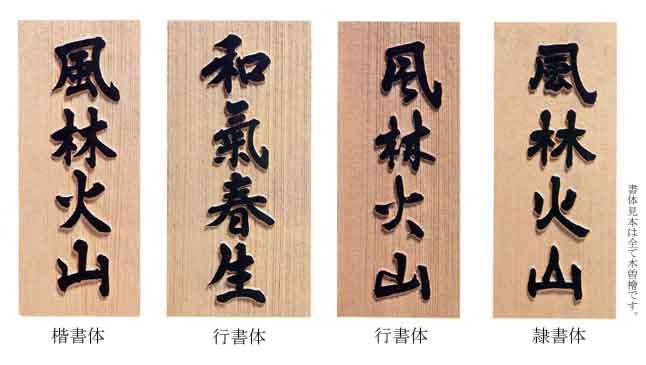 風林火山
和氣春生
風林火山
風林火山
楷書体
行書体
行書体
隷書体
書体見本は全て木曽檜です。